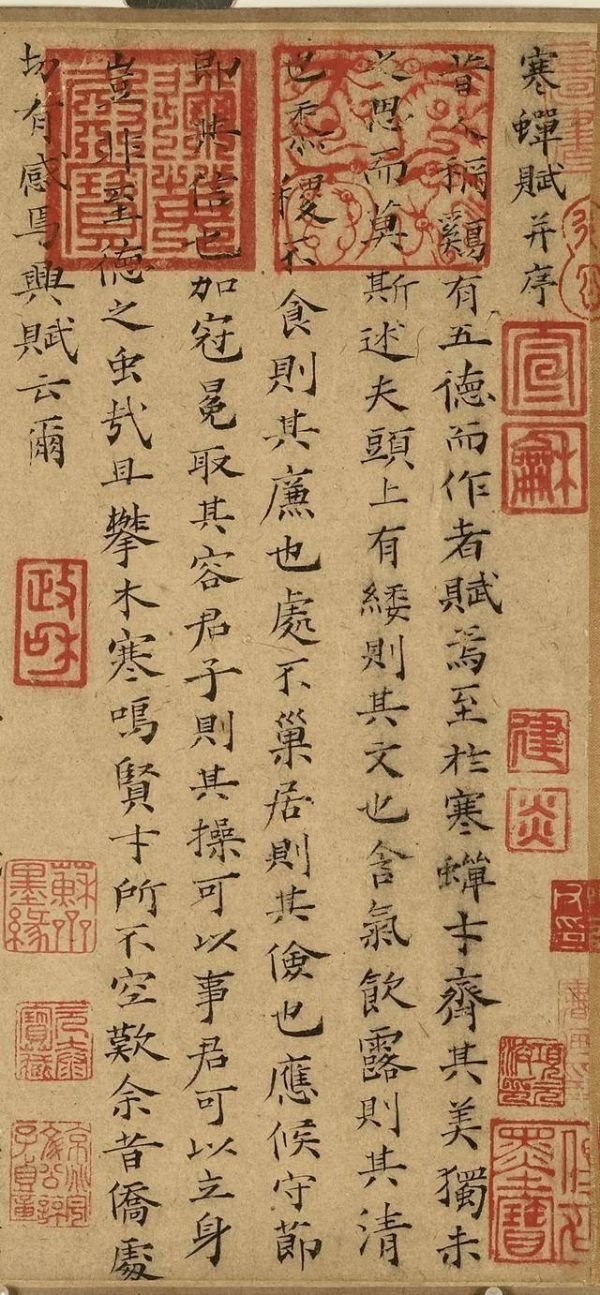 寒蟬賦并序
昔人稱鷄有五德而作者賦焉至於寒蟬才齊其美獨未
之思而莫斯述夫頭上有緌則其文也含氣飲露則其清
也黍稷不食則其廉也處不巢居則其儉也應候守節
即其信也加冠冕取其容君子則其操可以事君可以立身
豈非至德之虫哉且攀木寒鳴賢才所不空歎余昔僑處
切有感焉興賦云爾
宣龢
建炎
墨寶
政和
蘇齋墨緣